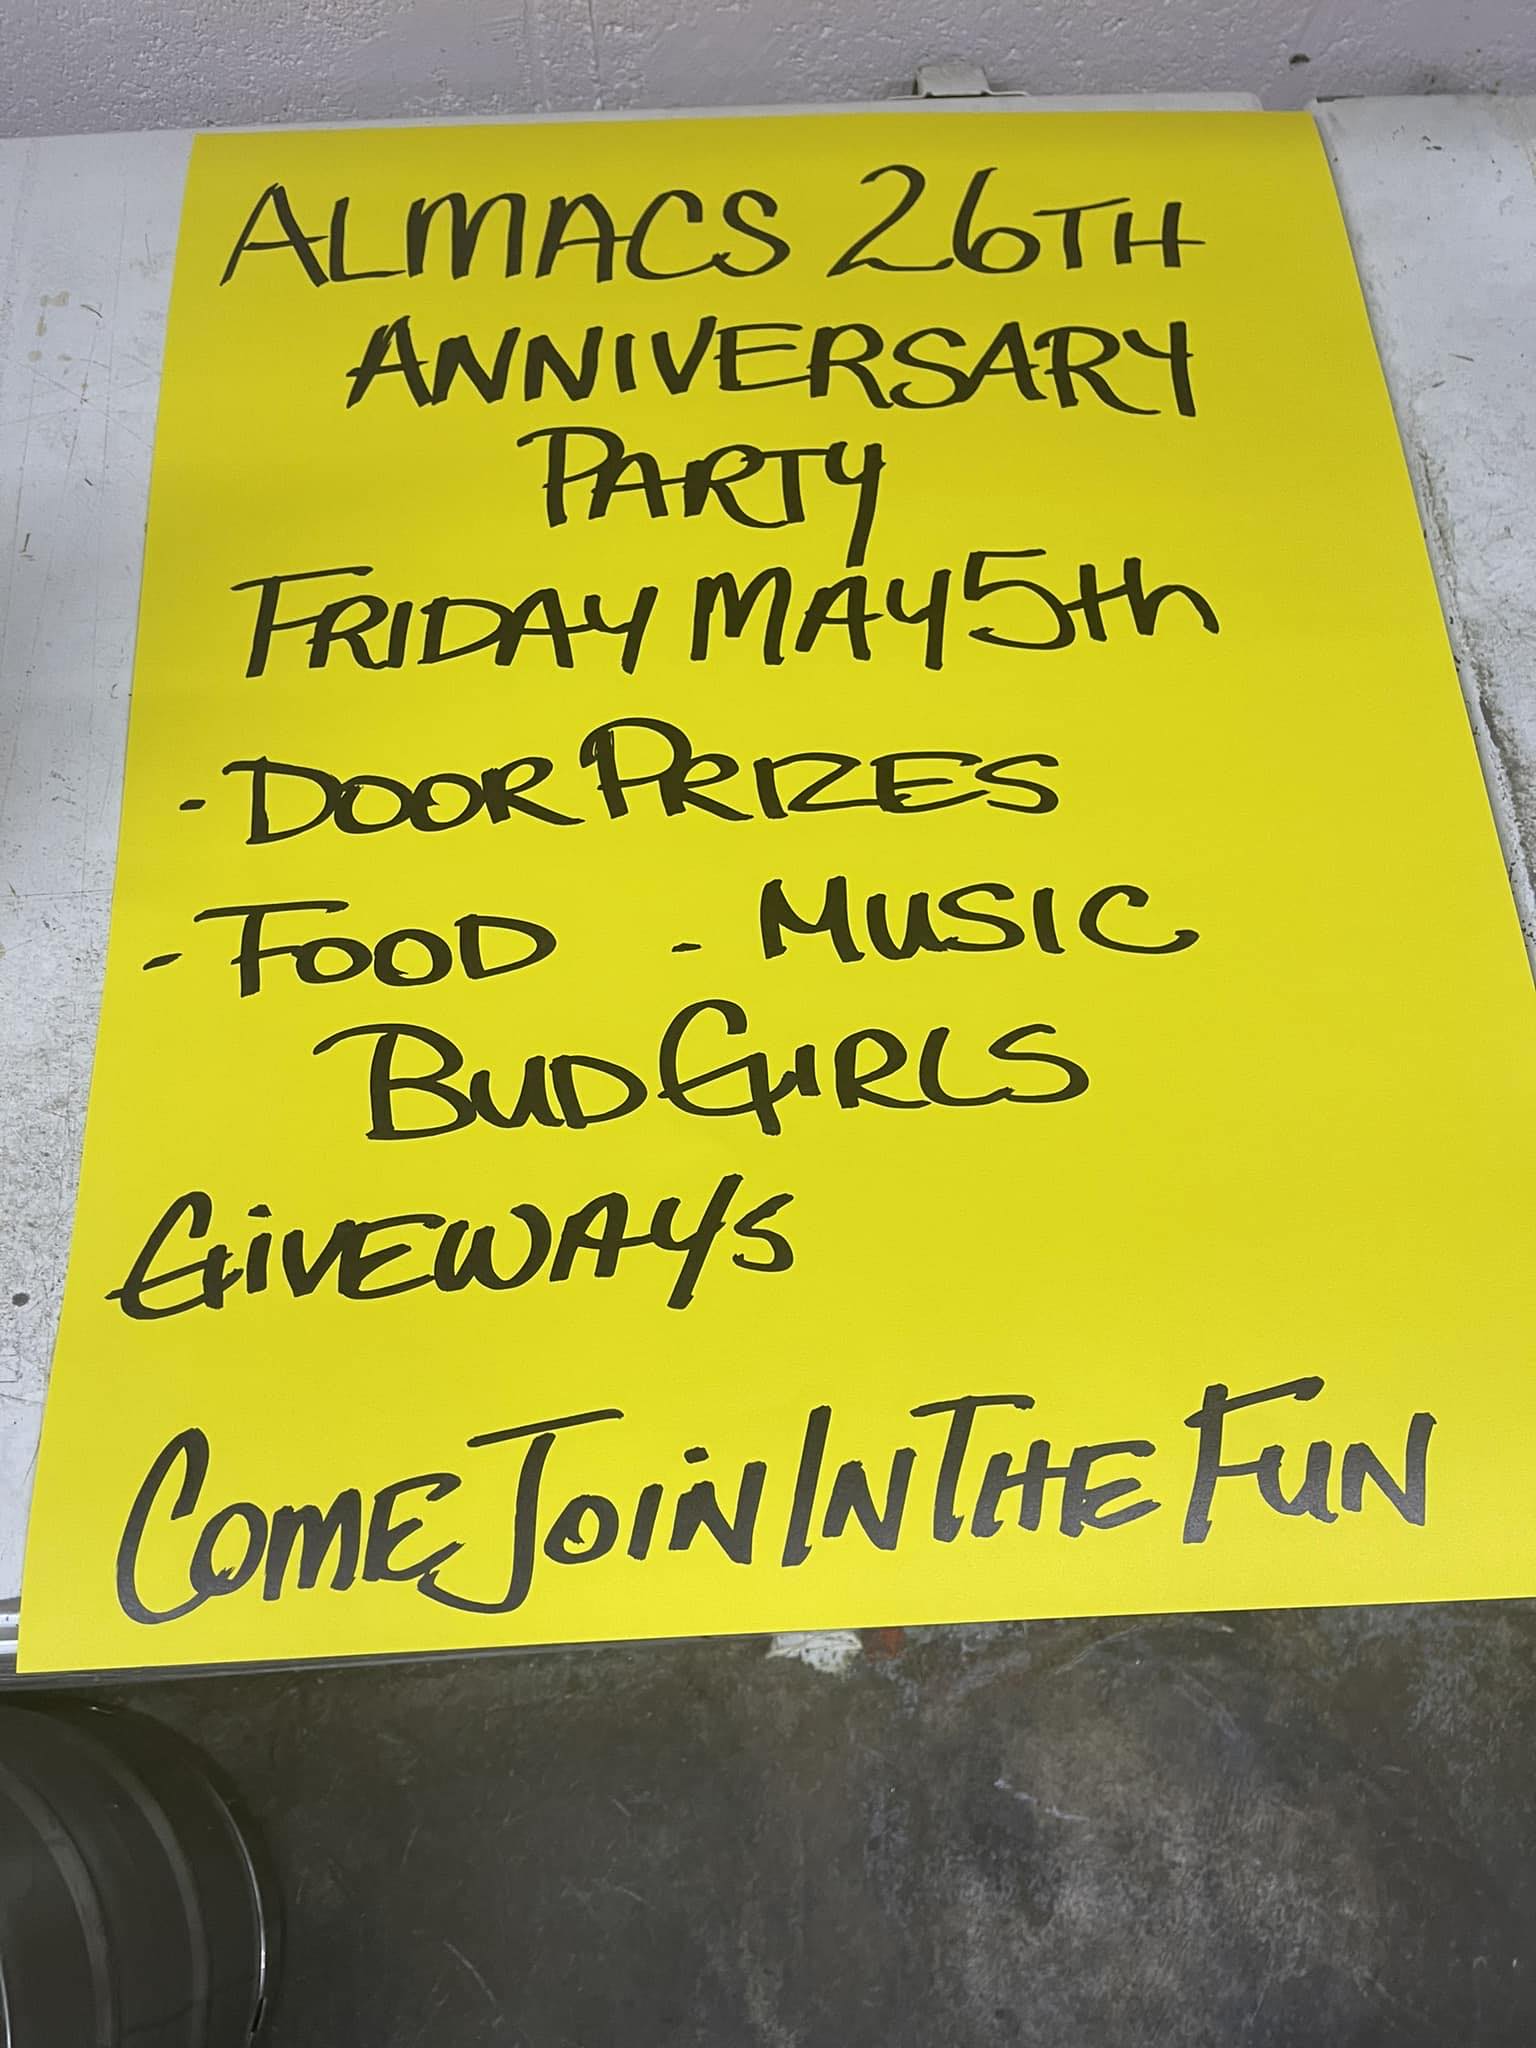 ALMACS 26TH
ANNIVERSARY
PARTY
FRIDAY MAY 5th
- DOOR PRIZES
- FOOD - MUSIC
BUD GIRLS
GIVEWAYS
COME JOIN IN THE FUN